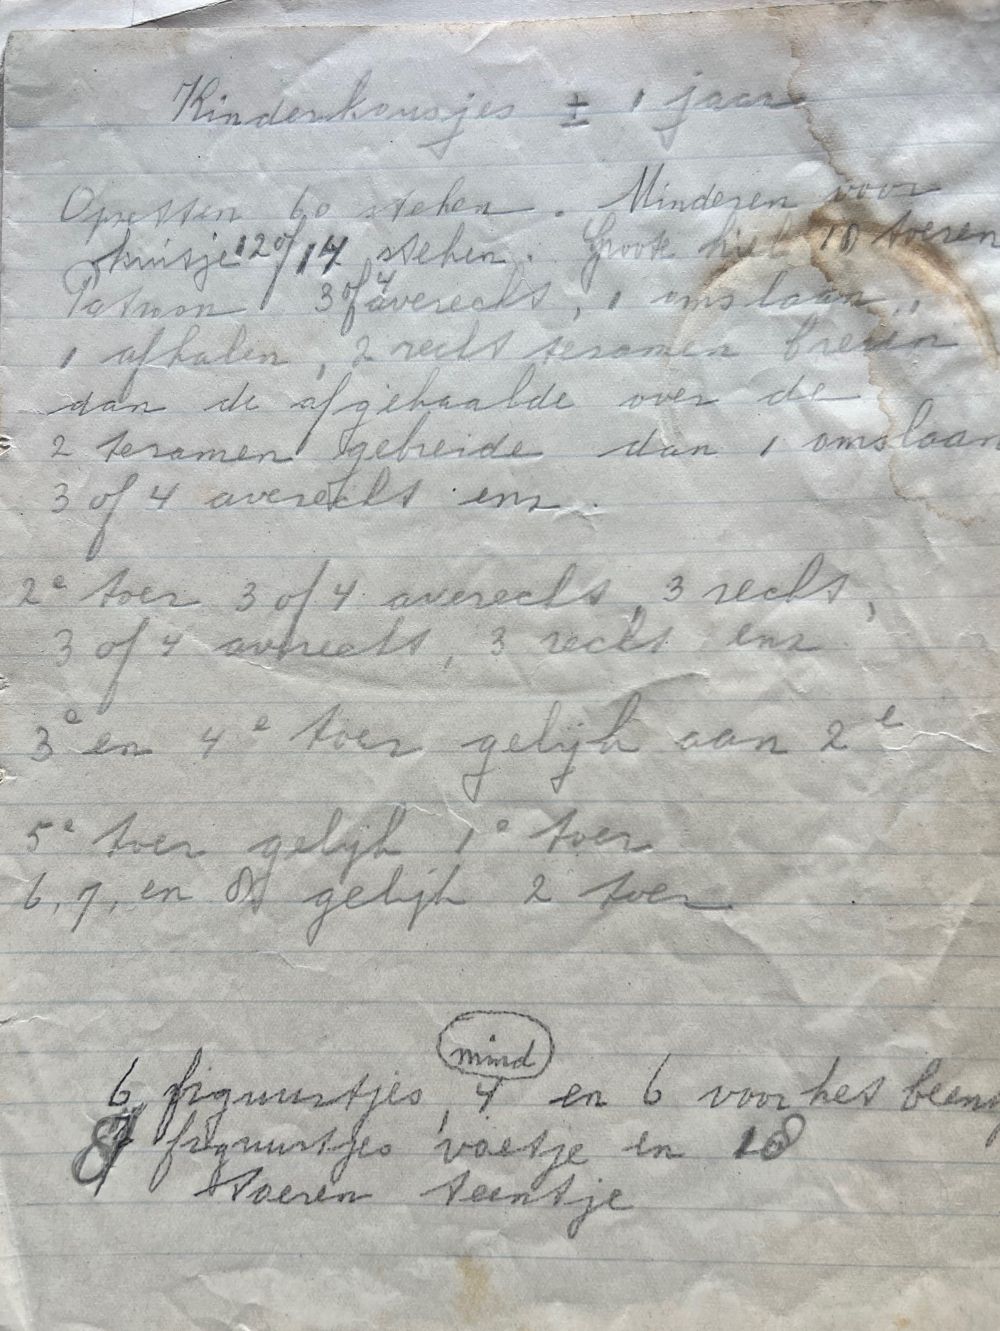 Kinderkousjes ± 1 jaar
Opzetten 60 steken. Minderen voor
kuitsje 12 of 14 steken. Groote hiel 10 toeren
Patroon 3 of 4 averechts, 1 omslaan,
1 afhalen, 2 recht tesamen breien
dan de afgehaalde over de
2 tesamen gebreide dan 1 omslaan
3 of 4 averechts enz.
2e toer 3 of 4 averechts, 3 recht,
3 of 4 averechts, 3 recht enz
3e en 4e toer gelijk aan 2e
5e toer gelijk 1e toer
6, 7, en 8 gelijk 2 toer
mind
6 figuurtjes, 4 en 6 voor het been
8 figuurtjes voetje en 18
toeren teentje